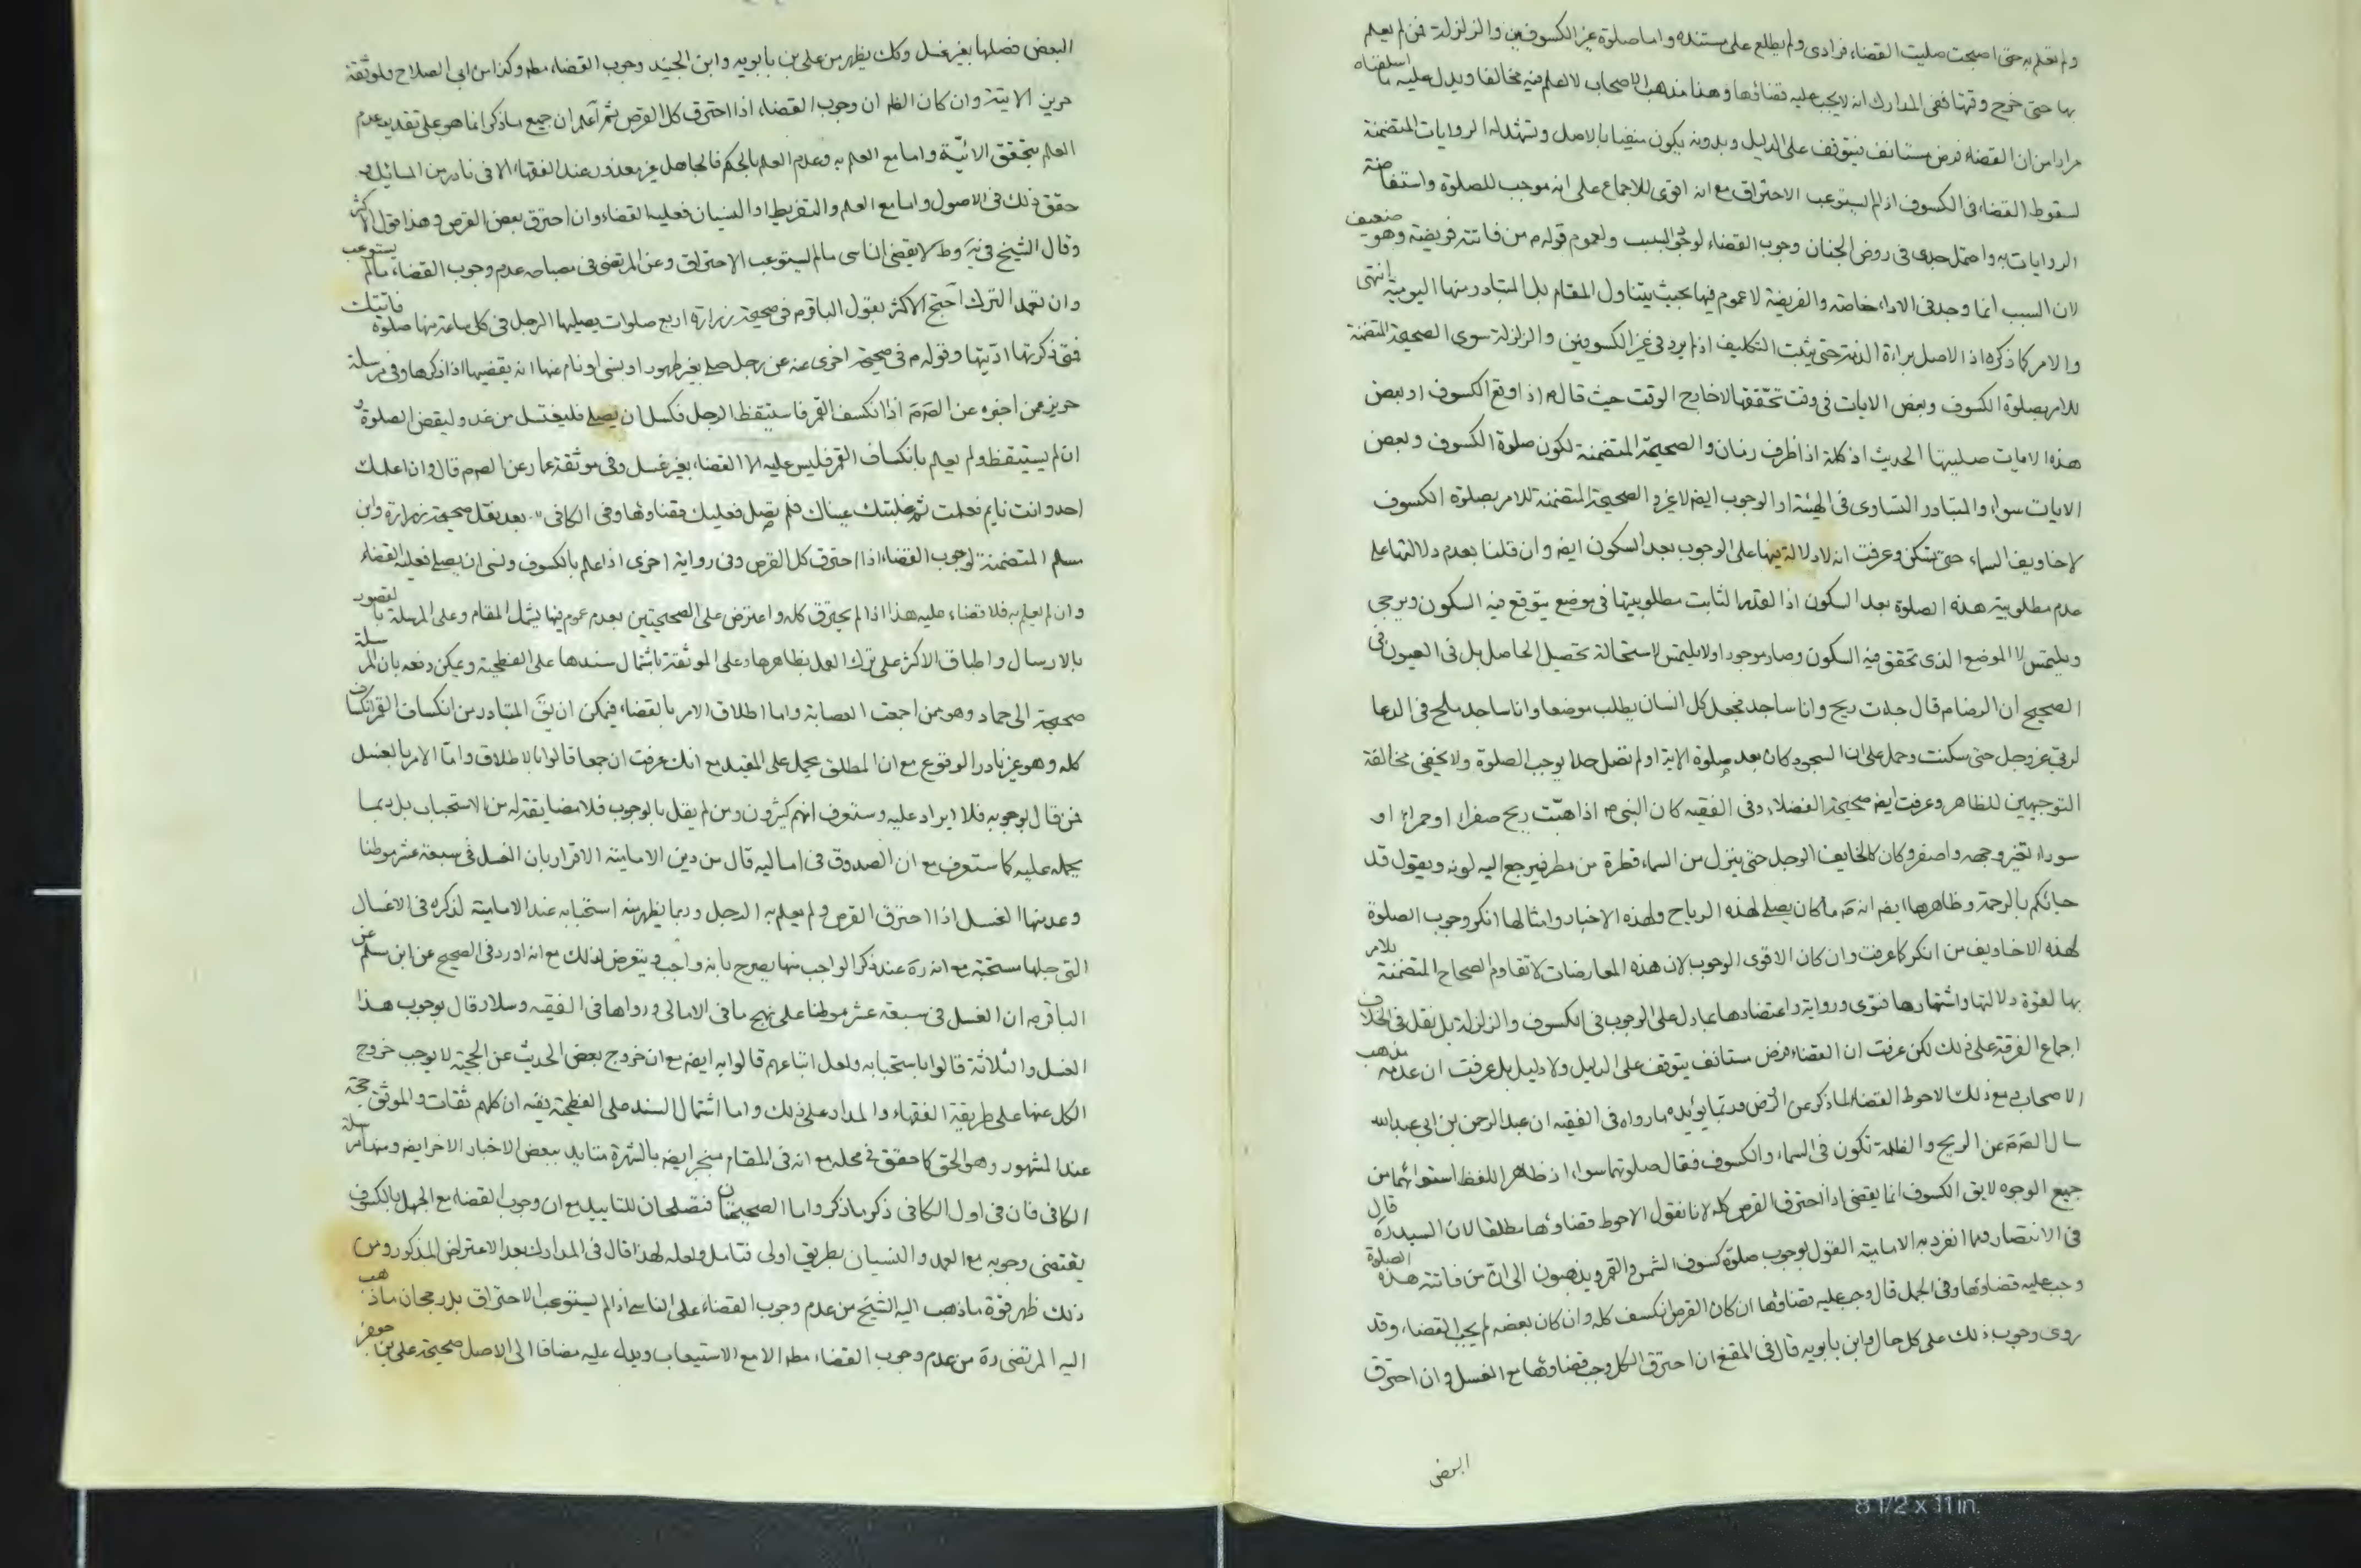 ولم تعلم به حتى اصبحت صليت القضاء فرادى ولم يطلع على مستنده واما صلوة غير الكسوفين والزلزلة فمن لم يعلم
بها حتى خرج وقتها ففى المدارك انه لا يجب عليه قضاؤها وهذا مذهب الاصحاب لا نعلم فيه مخالفا ويدل عليه ما اسلفناه
مرارا من ان القضاء فرض مستانف فيتوقف على الدليل وبدونه يكون منفيا بالاصل وتشهد له الروايات المتضمنة
لسقوط القضاء فى الكسوف اذا لم يستوعب الاحتراق مع انه اقوى للاجماع على انه موجب للصلوة واستفاضة
الروايات به واحتمل جدى فى روض الجنان وجوب القضاء لوجود السبب ولعموم قوله م من فاتته فريضة وهو ضعيف
لان السبب انما وجد فى الاداء خاصة والفريضة لا عموم فيها بحيث يتناول المقام بل المتبادر منها اليومية انتهى
والامر كما ذكره اذ الاصل براءة الذمة حتى يثبت التكليف اذ لم يرد فى غير الكسوفين والزلزلة سوى الصحيحة المتضمنة
للامر بصلوة الكسوف وبعض الايات فى وقت تحققها لا خارج الوقت حيث قال م اذا وقع الكسوف او بعض
هذه الايات صليتها الحديث اذ كلمة اذا ظرف زمان والصحيحة المتضمنة لكون صلوة الكسوف وبعض
الايات سواء والمتبادر التساوى فى الهيئة او الوجوب ايضا لا غير والصحيحة المتضمنة للامر بصلوة الكسوف
لاخاويف السماء حتى تسكن وعرفت انه لا دلالة فيها على الوجوب بعد السكون ايضا وان قلنا بعدم دلالتها على
عدم مطلوبية هذه الصلوة بعد السكون اذ القدر الثابت مطلوبيتها فى موضع يتوقع فيه السكون ويرجى
ويلتمس لا الموضع الذى تحقق فيه السكون وصار موجودا ولا يلتمس لاستحالة تحصيل الحاصل بل فى العيون فى
الصحيح ان الرضا م قال جاءت ريح وانا ساجد فجعل كل انسان يطلب موضعا وانا ساجد ملح فى الدعا
لربى عز وجل حتى سكنت وحمل على ان السجود كان بعد صلوة الاية او لم تصل حدا يوجب الصلوة ولا يخفى مخالفة
التوجيهين للظاهر وعرفت ايضا صحيحة الفضلاء وفى الفقيه كان النبى ص اذا هبت ريح صفراء او حمراء او
سوداء تغير وجهه واصفر وكان كالخايف الوجل حتى ينزل من السماء قطرة من مطر فيرجع اليه لونه ويقول قد
جائتكم بالرحمة وظاهرها ايضا انه ص ما كان يصلى لهذه الرياح ولهذه الاخبار وامثالها انكر وجوب الصلوة
لهذه الاخاويف من انكر كما عرفت وان كان الاقوى الوجوب لان هذه المعارضات لا تقاوم الصحاح المتضمنة للامر
بها لقوة دلالتها واشتهارها فتوى ورواية واعتضادها بما دل على الوجوب فى الكسوف والزلزلة بل نقل فى الخلاف
اجماع الفرقة على ذلك لكن عرفت ان القضاء فرض مستانف يتوقف على الدليل ولا دليل بل عرفت ان عدمه مذهب
الاصحاب مع ذلك الاحوط القضاء لما ذكر عن الروض وربما يؤيده ما رواه فى الفقيه ان عبد الرحمن بن ابى عبد الله
سال الصم عن الريح والظلمة تكون فى السماء والكسوف فقال صلوتهما سواء اذ ظاهر اللفظ استوائهما من
جميع الوجوه لا يق الكسوف انما يقضى اذا احترق القرص كله لانا نقول الاحوط قضاؤها مطلقا لان السيد ره قال
فى الانتصار ومما انفرد به الامامية القول بوجوب صلوة كسوف الشمس والقمر ويذهبون الى ان من فاتته هذه الصلوة
وجب عليه قضاؤها وفى الجمل قال وجب عليه قضاؤها ان كان القرص انكسف كله وان كان بعضه لم يجب القضاء وقد
روى وجوب ذلك على كل حال وابن بابويه قال فى المقنع ان احترق الكل وجب قضاؤها مع الغسل وان احترق
البعض
البعض فصلها بغير غسل وكك يظهر من على بن بابويه وابن الجنيد وجوب القضاء مطه وكذا من ابى الصلاح ولموثقة
حريز الاتية وان كان الظم ان وجوب القضاء اذا احترق كل القرص ثم اعلم ان جميع ما ذكر انما هو على تقدير عدم
العلم بتحقق الاية واما مع العلم به وعدم العلم بالحكم فالجاهل غير معذور عند الفقهاء الا فى نادر من المسائل وقد
حقق ذلك فى الاصول واما مع العلم والتفريط او النسيان فعليه القضاء وان احترق بعض القرص وهذا قول الاكثر
وقال الشيخ فى يه وط لا يقضى الناسى ما لم يستوعب الاحتراق وعن المرتضى فى مصباحه عدم وجوب القضاء ما لم يستوعب
وان تعمد الترك احتج الاكثر بقول الباقر م فى صحيحة زرارة اربع صلوات يصليها الرجل فى كل ساعة منها صلوة فاتتك
فمتى ذكرتها اديتها وقوله م فى صحيحة اخرى عنه عن رجل صلى بغير طهور او نسى او نام عنها انه يقضيها اذا ذكرها وفى مرسلة
حريز عمن اخبره عن الصم اذا انكسف القمر فاستيقظ الرجل فكسل ان يصلى فليغتسل من غد وليقض الصلوة و
ان لم يستيقظ ولم يعلم بانكساف القمر فليس عليه الا القضاء بغير غسل وفى موثقة عمار عن الصم قال وان اعلمك
احد وانت نايم فعلمت ثم غلبتك عيناك فلم تصل فعليك قضاؤها وفى الكافى بعد نقل صحيحة زرارة وابن
مسلم المتضمنة لوجوب القضاء اذا احترق كل القرص وفى رواية اخرى اذا علم بالكسوف ونسى ان يصلى فعليه القضاء
وان لم يعلم به فلا قضاء عليه هذا اذا لم يحترق كله واعترض على الصحيحتين بعدم عموم فيها يشمل المقام وعلى المرسلة بالقصور
بالارسال واطباق الاكثر على ترك العمل بظاهرها وعلى الموثقة باشتمال سندها على الفطحية ويمكن دفعه بان المرسلة
صحيحة الى حماد وهو ممن اجمعت العصابة واما اطلاق الامر بالقضاء فيمكن ان يق المتبادر من انكساف القمر انكساف
كله وهو غير نادر الوقوع مع ان المطلق يحمل على المقيد مع انك عرفت ان جمعا قالوا بالاطلاق واما الامر بالغسل
فمن قال بوجوبه فلا ايراد عليه وستعرف انهم كثيرون ومن لم يقل بالوجوب فلا مضايقة له من الاستحباب بل ربما
يحمله عليه كما ستعرف مع ان الصدوق فى اماليه قال من دين الامامية الاقرار بان الغسل فى سبعة عشر موطنا
وعد منها الغسل اذا احترق القرص ولم يعلم به الرجل وربما يظهر منه استحبابه عند الامامية لذكره فى الاغسال
التى جلها مستحبة مع انه ره عند ذكر الواجب منها يصرح بانه واجب ويتعرض لذلك مع انه اورد فى الصحيح عن ابن مسلم عن
الباقر م ان الغسل فى سبعة عشر موطنا على نهج ما فى الامالى ورواها فى الفقيه وسلار قال بوجوب هذا
الغسل والثلاثة قالوا باستحبابه ولعل اتباعهم قالوا به ايضا مع ان خروج بعض الحديث عن الحجية لا يوجب خروج
الكل عنها على طريقة الفقهاء والمدار على ذلك واما اشتمال السند على الفطحية ففيه ان كلهم ثقات والموثق حجة
عند المشهور وهو الحق كما حقق فى محله مع انه فى المقام منجبر ايضا بالشهرة متايد ببعض الاخبار الاخر ايضا ومنها مرسلة
الكافى فان فى اول الكافى ذكر ما ذكر واما الصحيحتان فتصلحان للتاييد مع ان وجوب القضاء مع الجهل بالكسوف
يقتضى وجوبه مع العمد والنسيان بطريق اولى فتامل ولعله لهذا قال فى المدارك بعد الاعتراض المذكور ومن
ذلك ظهر قوة ما ذهب اليه الشيخ من عدم وجوب القضاء على الناسى اذا لم يستوعب الاحتراق بل رجحان ما ذهب
اليه المرتضى ره من عدم وجوب القضاء مطه الا مع الاستيعاب ويدل عليه مضافا الى الاصل صحيحة على بن جعفر
8 1/2 x 11 in.